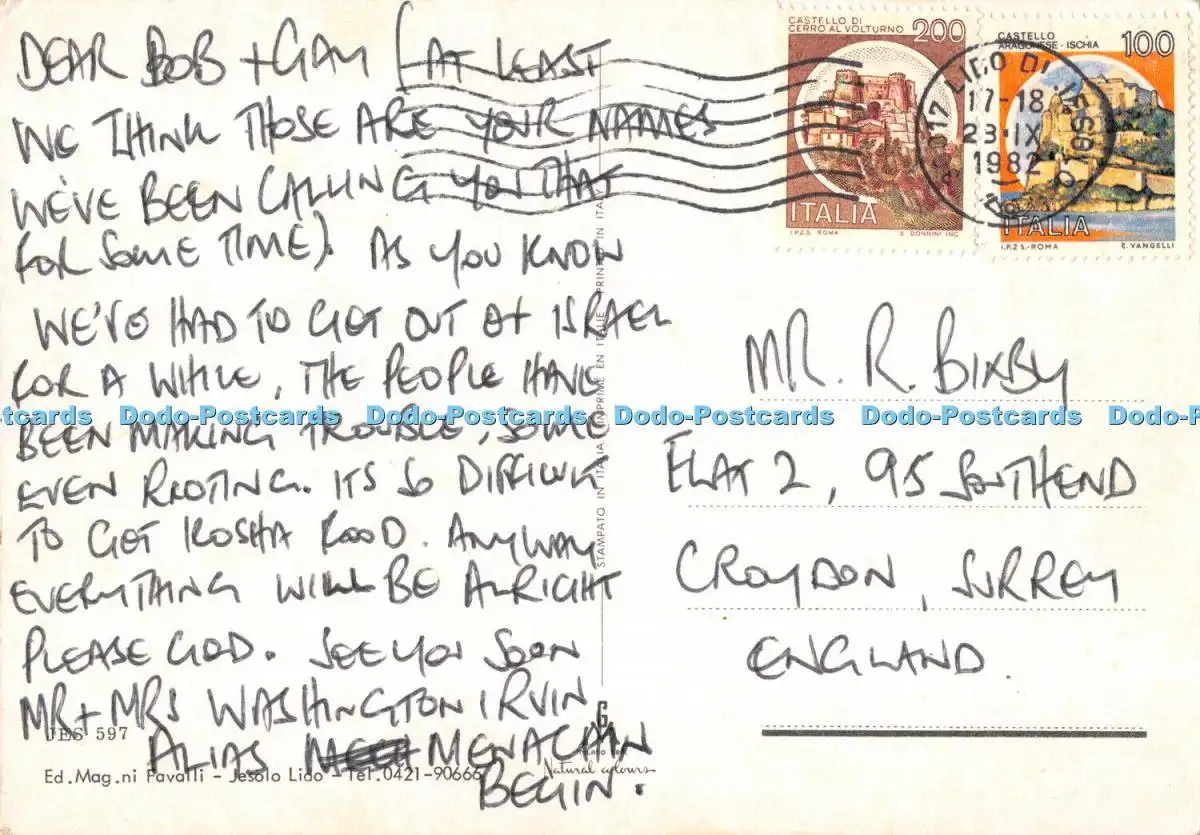 DEAR BOB + GAY (AT LEAST
WE THINK THOSE ARE YOUR NAMES
WE'VE BEEN CALLING YOU THAT
FOR SOME TIME). AS YOU KNOW
WE'VE HAD TO GET OUT OF ISRAEL
FOR A WHILE, THE PEOPLE HAVE
BEEN MAKING TROUBLE, SOME
EVEN RIOTING. ITS SO DIFFICULT
TO GET KOSHA FOOD. ANYWAY
EVERYTHING WILL BE ALRIGHT
PLEASE GOD. SEE YOU SOON
MR + MRS WASHINGTON IRVIN
ALIAS MENACHAN
BEGIN.
JES 597
Ed. Mag.ni Favalli - Jesolo Lido - Tel. 0421-90666
Natural colours
STAMPATO IN ITALIA IMPRIME EN ITALIE PRINTED IN ITALY
CASTELLO DI
CERRO AL VOLTURNO 200
ITALIA
I.P.Z.S. ROMA E. DONNINI INC.
CASTELLO
ARAGONESE - ISCHIA 100
ITALIA
I.P.Z.S. - ROMA E. VANGELLI
LIDO DI JESOLO
17-18
23·IX
1982
MR. R. BIXBY
FLAT 2, 95 SOUTHEND
CROYDON, SURREY
ENGLAND.
tcards Dodo-Postcards Dodo-Postcards Dodo-Postcards Dodo-Postcards Dodo-P